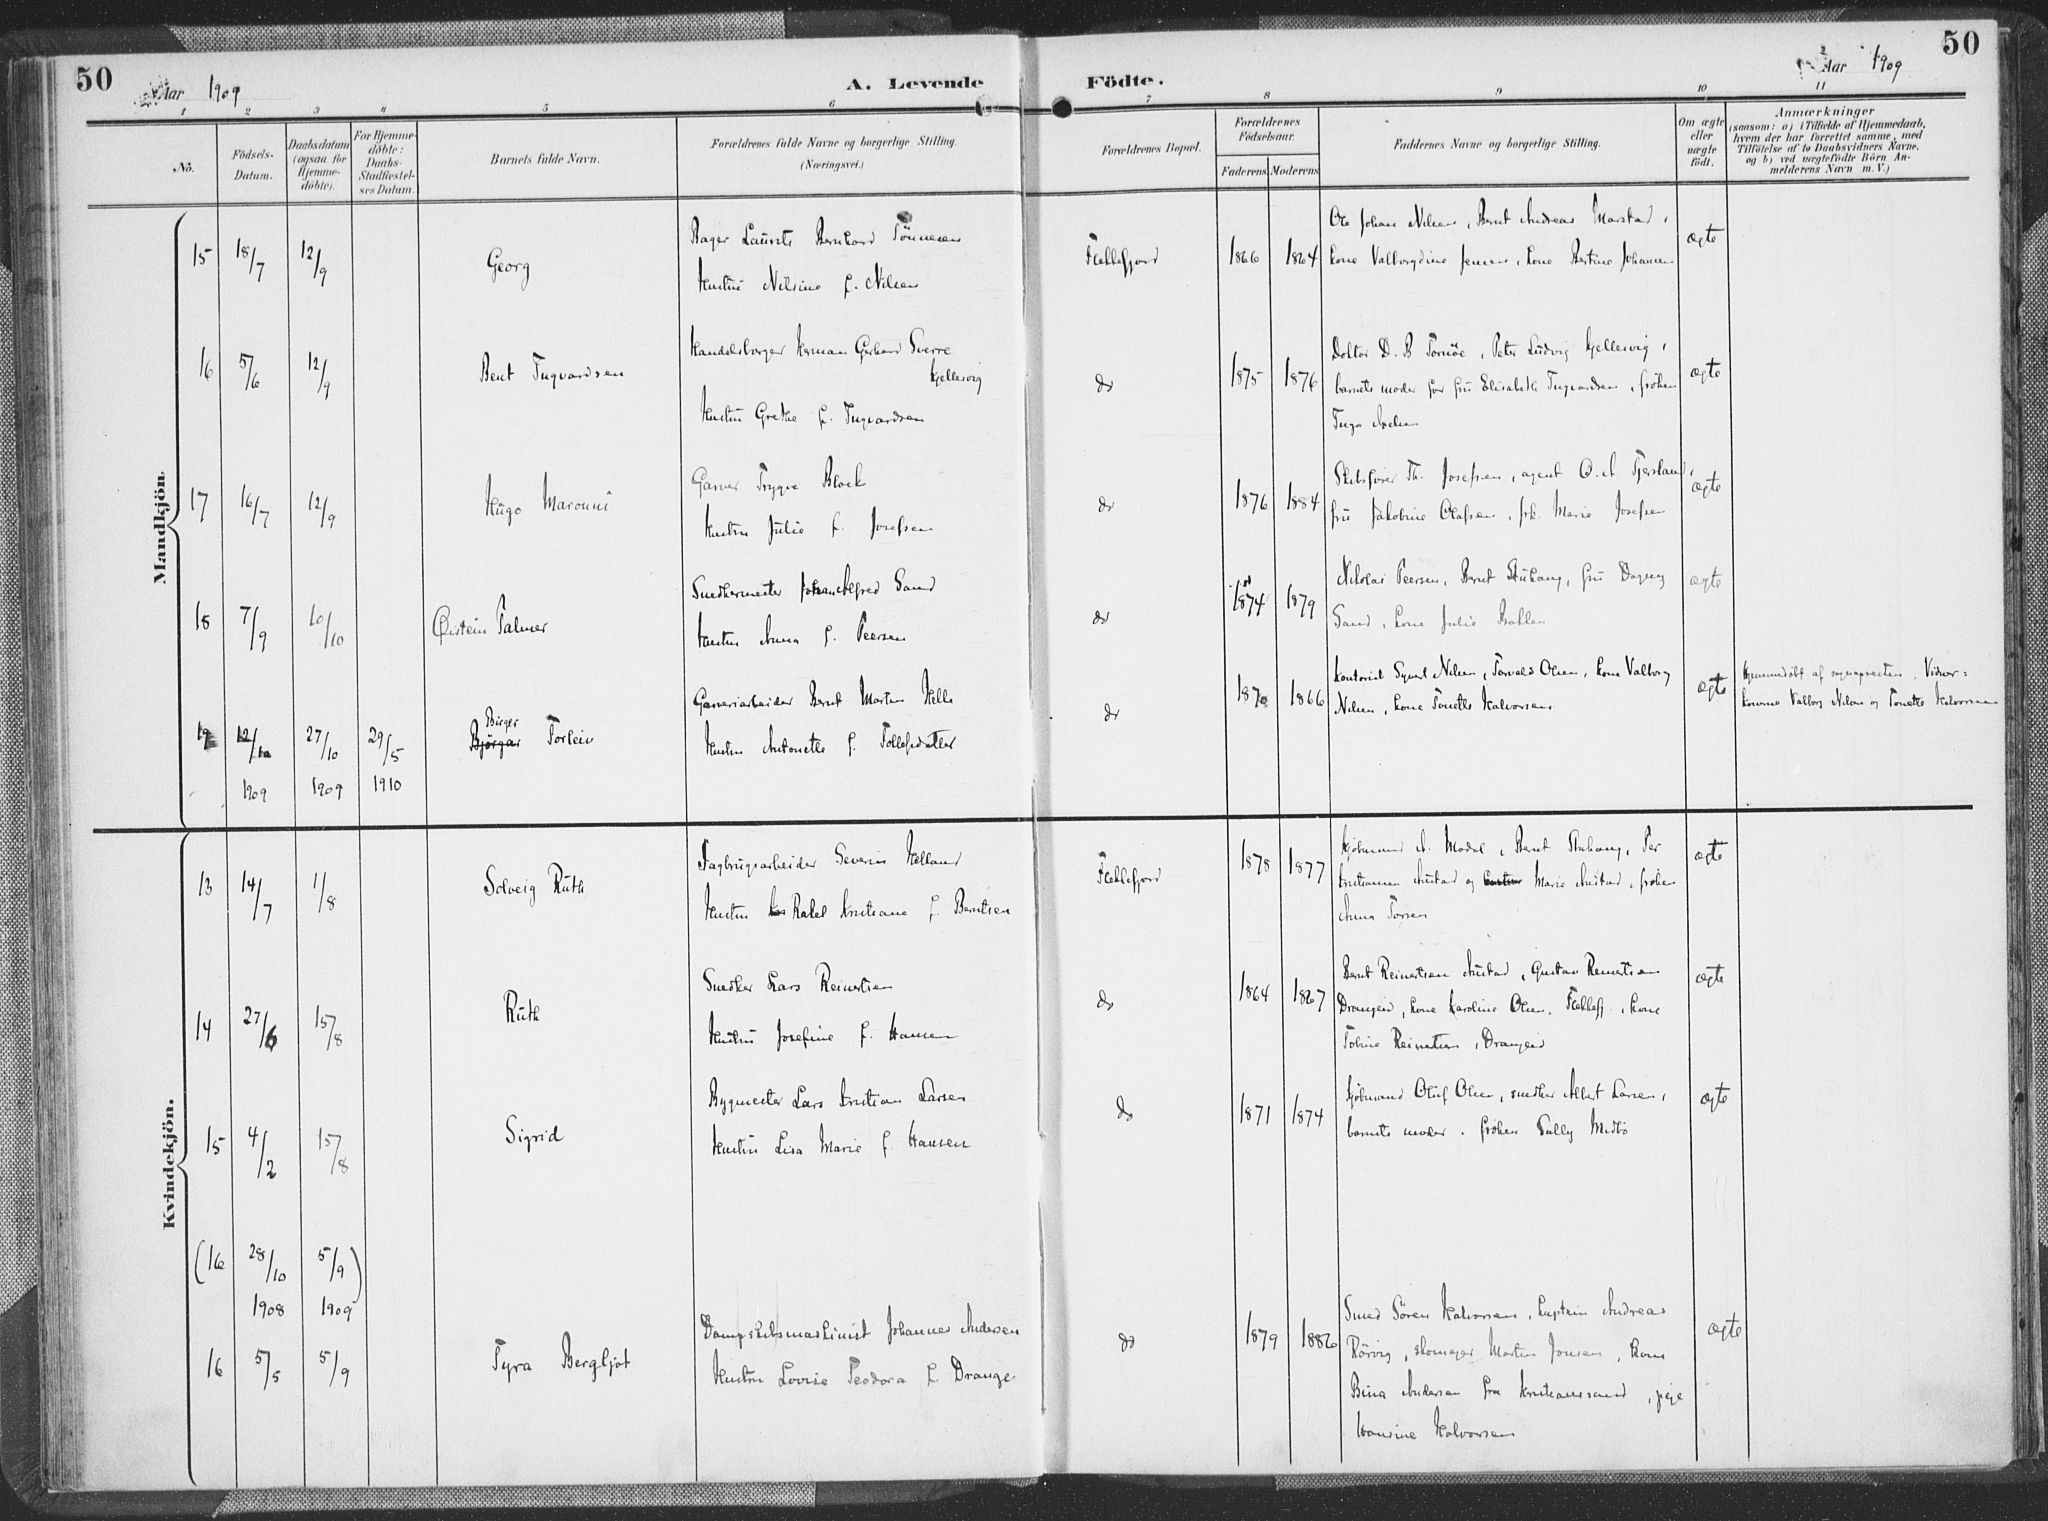 50
Aar 1909
A. Levende Födte.
Aar 1909
50
1 2 3 4 5 6 7 8 9 10 11
No.
Födsels-Datum.
Daabsdatum (ogsaa for Hjemme-döbte).
For Hjemme-döbte: Daabs-Stadfæstel-ses Datum.
Barnets fulde Navn.
Forældrenes fulde Navne og borgerlige Stilling.
(Næringsvei.)
Forældrenes Bopæl.
Forældrenes Födselsaar.
Faderens Moderens
Faddernes Navne og borgerlige Stilling.
Om ægte eller uægte födt.
Anmærkninger
(saasom: a) i Tilfælde af Hjemmedaab,
hvem der har forrettet samme, med
Tilföielse af to Daabsvidners Navne,
og b) ved uægtefödte Börn An-
melderens Navn m. V.)
Mandkjön.
15 18/7 12/9 Georg
Bager Laurits Bernhard Tönnesen
Hustru Nilsine f. Nilsen
Flekkefjord 1866 1864
Ole Johan Nilsen, Bernt Andreas Marstad,
kone Valborgdine Jensen, kone Bertine Johansen
ægte
16 5/6 12/9 Bent Ingvardsen
Handelsborger Herman Gerhard Sverre
Kjellesvig
Hustru Grethe f. Ingvardsen
do 1875 1876
Doktor D. B. Tornöe, Peter Ludvig Kjellesvig,
barnets moder for fru Elisabeth Ingvardsen, fröken
Inga
ægte
17 16/7 12/9 Hugo
Garver Trygve Block
Hustru Julie f. Josefsen
do 1876 1884
Skibsförer Th. Josefsen, agent O. A. Tjersland,
fru Jakobine Olafsen, frk. Marie Josefsen
ægte
18 7/9 10/10 Öistein Palmer
Snedkermester Johan Alfred Sand
Hustru Anna f. Peersen
do 1874 1879
Nikolai Peersen, Bernt Stuhaug, fru Dagny
Sand, kone Julie
ægte
19 12/10 1909 27/10 1909 29/5 1910
Birger
Björgar Torleiv
Garveriarbeider Bernt Morten Helle
Hustru Antonette f. Tollefsdatter
do 1870 1866
Kontorist Sigurd Nilsen, Torvald Olsen, kone Valborg
Nilsen, kone Tonette Halvorsen
ægte
Hjemmedöbt af sognepresten. Vidner:
konerne Valborg Nilsen og Tonette Halvorsen
Kvindekjön.
13 14/7 1/8 Solveig Ruth
Fagbrugsarbeider Severin Helland
Hustru Rakel Kristiane f. Berntsen
Flekkefjord 1878 1877
Kjöbmand A. Modal, Bernt Stuhaug, Per
Kristiansen Austad og Marie Austad, fröken
Anna Torsen
ægte
14 27/6 15/8 Ruth
Snedker Lars Reinertsen
Hustru Josefine f. Hansen
do 1864 1867
Bernt Reinertsen Austad, Gustav Reinertsen
Drangeid, kone Karoline Olsen, Flekkefj., kone
Tobine Reinertsen, Drangeid
ægte
15 4/2 15/8 Sigrid
Bygmester Lars Kristian Larsen
Hustru Lisa Marie f. Hansen
do 1871 1874
Kjöbmand Oluf Olsen, snedker Albert Larsen,
barnets moder, fröken Tally Midbö
ægte
(16 28/10 1908 5/9 1909)
16 5/5 5/9 Tyra Bergljot
Dampskibsmaskinist Johannes Andersen
Hustru Lovise Teodora f. Drange
do 1879 1886
Smed Sören Halvorsen, kaptein Andreas
Rörvig, skomager Morten Jonsen, kone
Bina Andersen fra Kristianssand, pige
Hansine Halvorsen
ægte